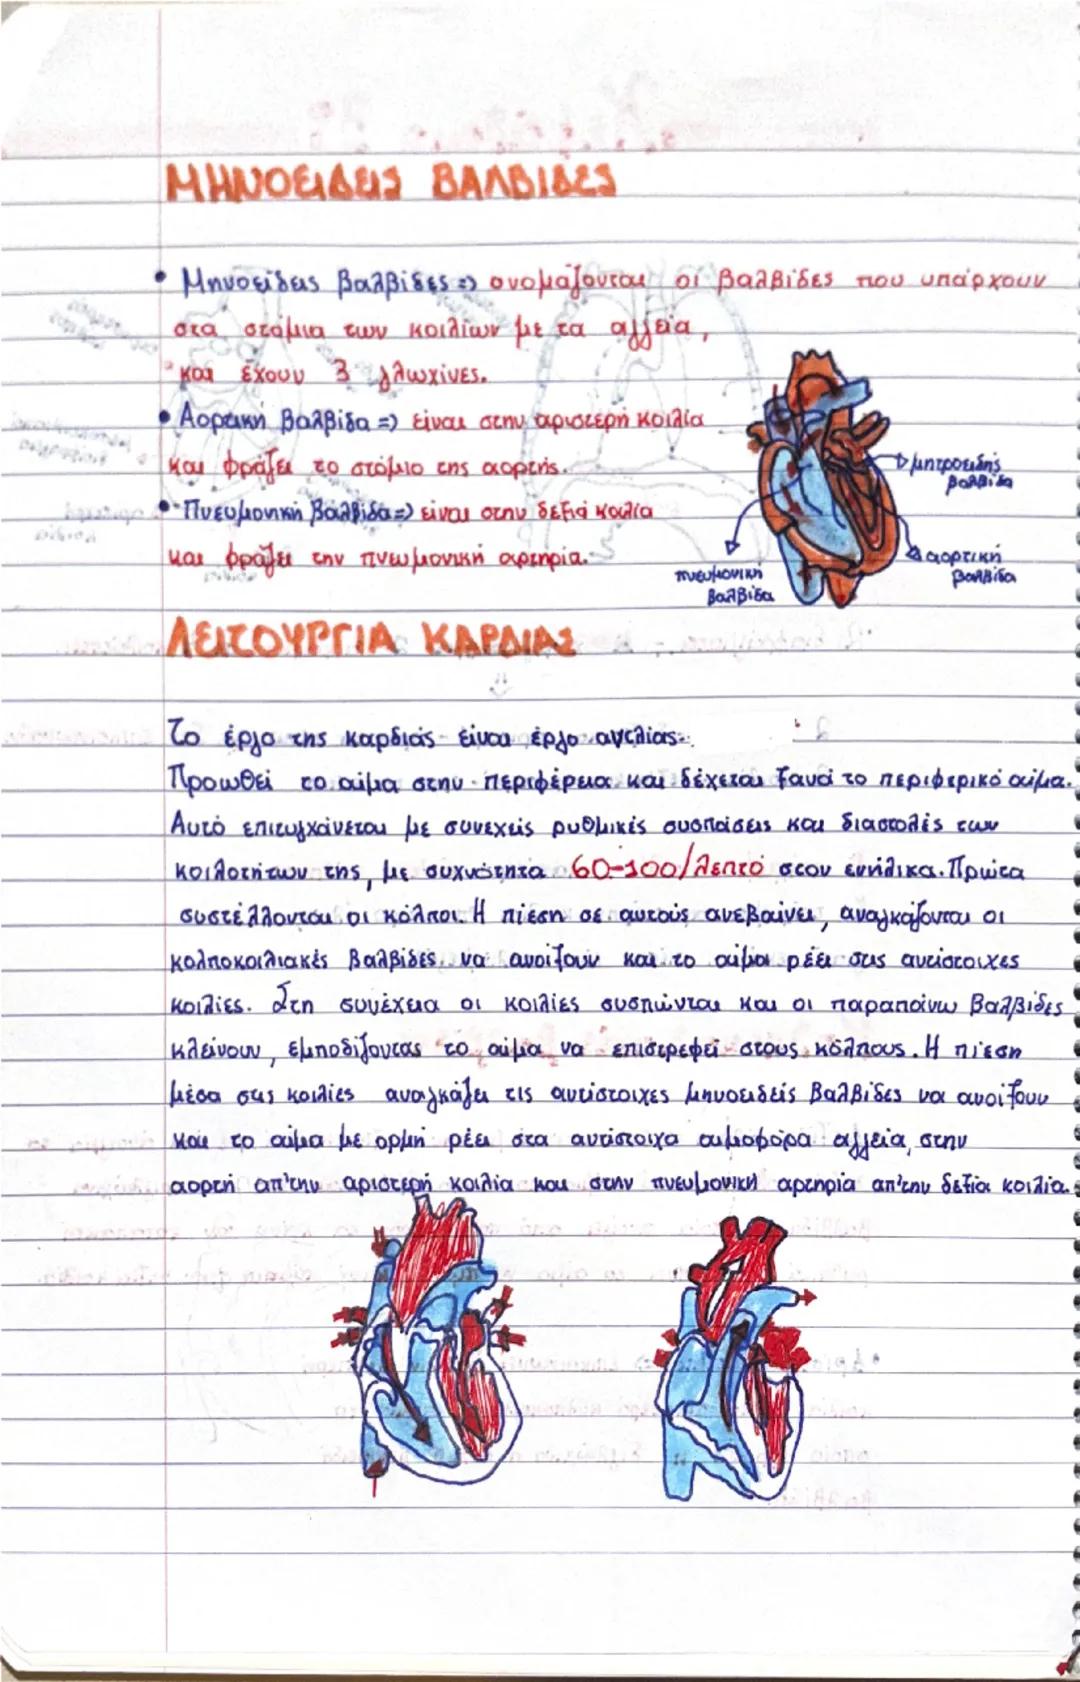 ΜΗΝΟΕΙΔΕΙΣ ΒΑΛΒΙΔΕΣ
• Μηνοείδεις βαλβίδες => ονομάζονται οι βαλβίδες που υπάρχουν
στα στόμια των κοιλίων με τα αγγεία,
και έχουν 3 γλωχίνες.
• Αορτική βαλβίδα => είναι στην αριστερή κοιλία
και φράζει το στόμιο της αορτής.
• Πνευμονική βαλβίδα => είναι στην δεξιά κοιλία
και φράζει την πνευμονική αρτηρία.
μητροειδής
βαλβίδα
αορτική
βαλβίδα
πνευμονική
βαλβίδα
ΛΕΙΤΟΥΡΓΙΑ ΚΑΡΔΙΑΣ
Το έργο της καρδιάς είναι έργο αντλίας.
Προωθεί το αίμα στην περιφέρεια και δέχεται ξανά το περιφερικό αίμα.
Αυτό επιτυγχάνεται με συνεχείς ρυθμικές συσπάσεις και διαστολές των
κοιλοτήτων της, με συχνότητα 60-100/λεπτό στον ενήλικα. Πρώτα
συστέλλονται οι κόλποι. Η πίεση σε αυτούς ανεβαίνει, αναγκάζονται οι
κολποκοιλιακές βαλβίδες να ανοίξουν και το αίμα ρέει στις αντίστοιχες
κοιλίες. Στη συνέχεια οι κοιλίες συσπώνται και οι παραπάνω βαλβίδες
κλείνουν, εμποδίζοντας το αίμα να επιστρεφεί στους κόλπους. Η πίεση
μέσα στις κοιλίες αναγκάζει τις αντίστοιχες μηνοειδείς βαλβίδες να ανοίξουν
και το αίμα με ορμή ρέει στα αντίστοιχα αιμοφόρα αγγεία, στην
αορτή απ'την αριστερή κοιλία και στην πνευμονική αρτηρία απ'την δεξία κοιλία.